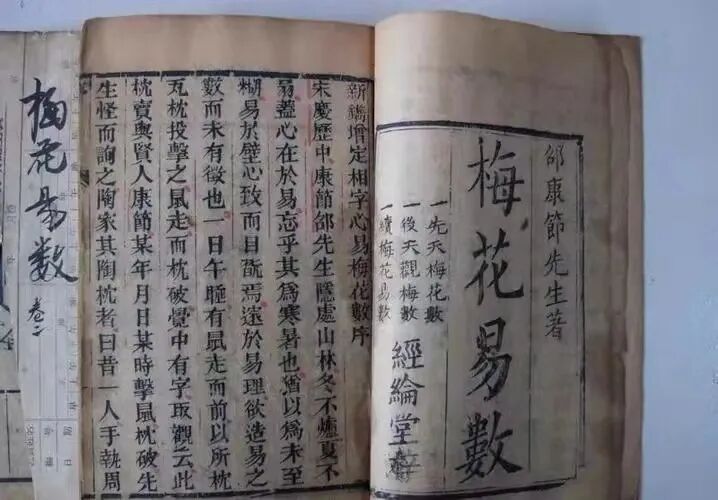 邵康節先生著
梅花易數
一先天梅花數
一後天觀梅數
一續梅花易數
經綸堂
新鐫增定相字心易梅花數序
宋慶歷中康節邵先生隱處山林冬不爐夏不
扇蓋心在於易忘乎其為寒暑也猶以為未至
糊易於壁心致而目翫焉邃於易理欲造易之
數而未有徵也一日午睡有鼠走而前以所枕
瓦枕投擊之鼠走而枕破覺中有字取觀云此
枕賣與賢人康節某年月日某時擊鼠枕破先
生怪而詢之陶家其陶枕者曰昔一人手執周
梅花易数
卷二